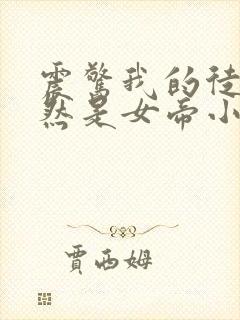 震驚我的徒
然是女帝小
賈西姆